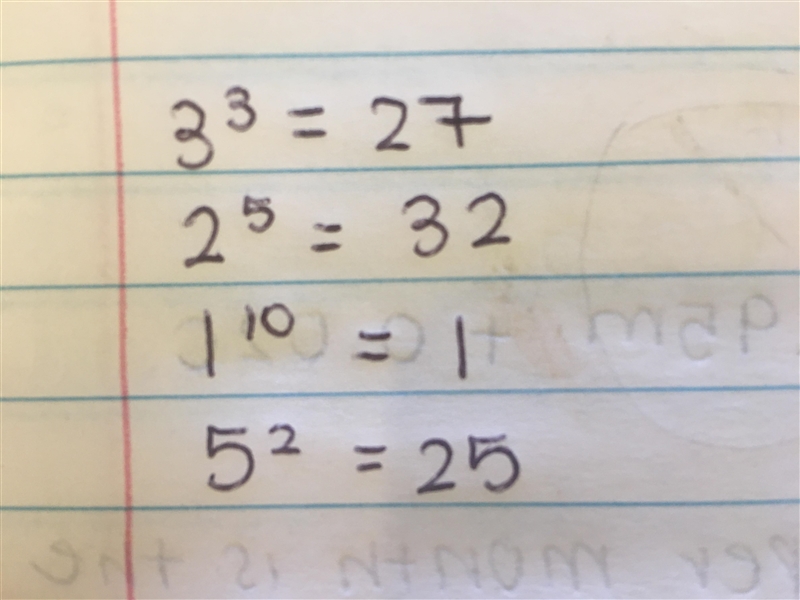 3³ = 27
2⁵ = 32
1¹⁰ = 1
5² = 25